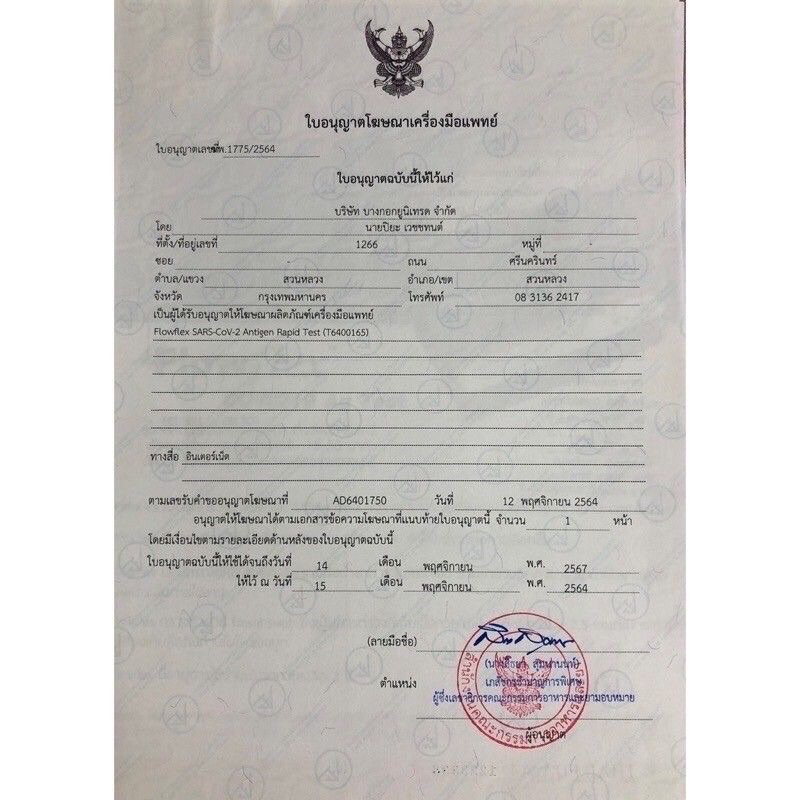 ใบอนุญาตโฆษณาเครื่องมือแพทย์
ใบอนุญาตเลขที่ ฆพ.1775/2564
ใบอนุญาตฉบับนี้ให้ไว้แก่
บริษัท บางกอกยูนิเทรด จำกัด
โดย นายปิยะ เวชชทนต์
ที่ตั้ง/ที่อยู่เลขที่ 1266 หมู่ที่ -
ซอย - ถนน ศรีนครินทร์
ตำบล/แขวง สวนหลวง อำเภอ/เขต สวนหลวง
จังหวัด กรุงเทพมหานคร โทรศัพท์ 08 3136 2417
เป็นผู้ได้รับอนุญาตให้โฆษณาผลิตภัณฑ์เครื่องมือแพทย์
Flowflex SARS-CoV-2 Antigen Rapid Test (T6400165)
ทางสื่อ อินเตอร์เน็ต
ตามเลขรับคำขออนุญาตโฆษณาที่ AD6401750 วันที่ 12 พฤศจิกายน 2564
อนุญาตให้โฆษณาได้ตามเอกสารข้อความโฆษณาที่แนบท้ายใบอนุญาตนี้ จำนวน 1 หน้า
โดยมีเงื่อนไขตามรายละเอียดด้านหลังของใบอนุญาตฉบับนี้
ใบอนุญาตฉบับนี้ให้ใช้ได้จนถึงวันที่ 14 เดือน พฤศจิกายน พ.ศ. 2567
ให้ไว้ ณ วันที่ 15 เดือน พฤศจิกายน พ.ศ. 2564
(ลายมือชื่อ)
ตำแหน่ง เภสัชกรชำนาญการพิเศษ
ผู้ซึ่งเลขาธิการคณะกรรมการอาหารและยามอบหมาย
ผู้อนุญาต